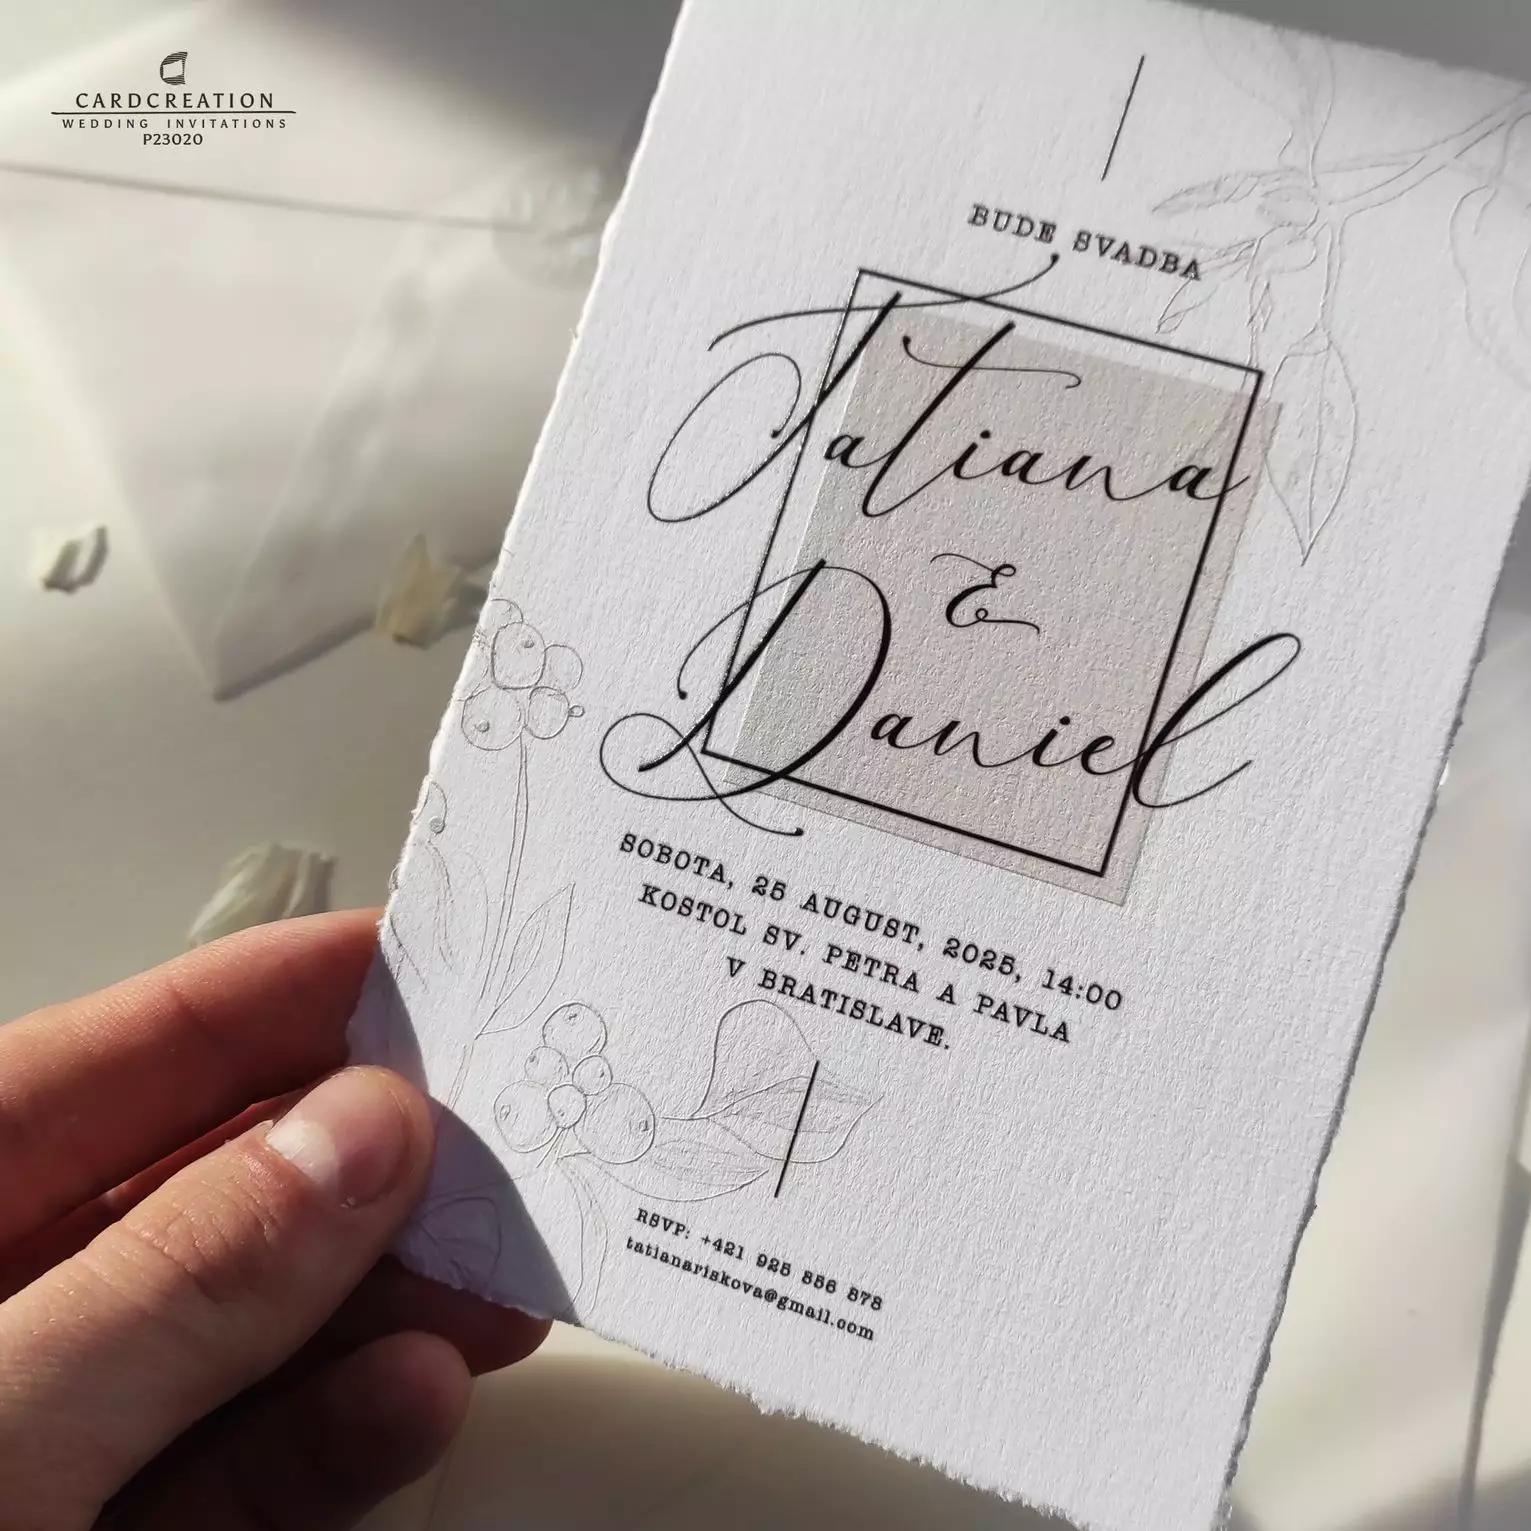 CARDCREATION
WEDDING INVITATIONS
P23020
BUDE SVADBA
Tatiana
&
Daniel
SOBOTA, 25 AUGUST, 2025, 14:00
KOSTOL SV. PETRA A PAVLA
V BRATISLAVE.
RSVP: +421 925 856 878
tatianariskova@gmail.com